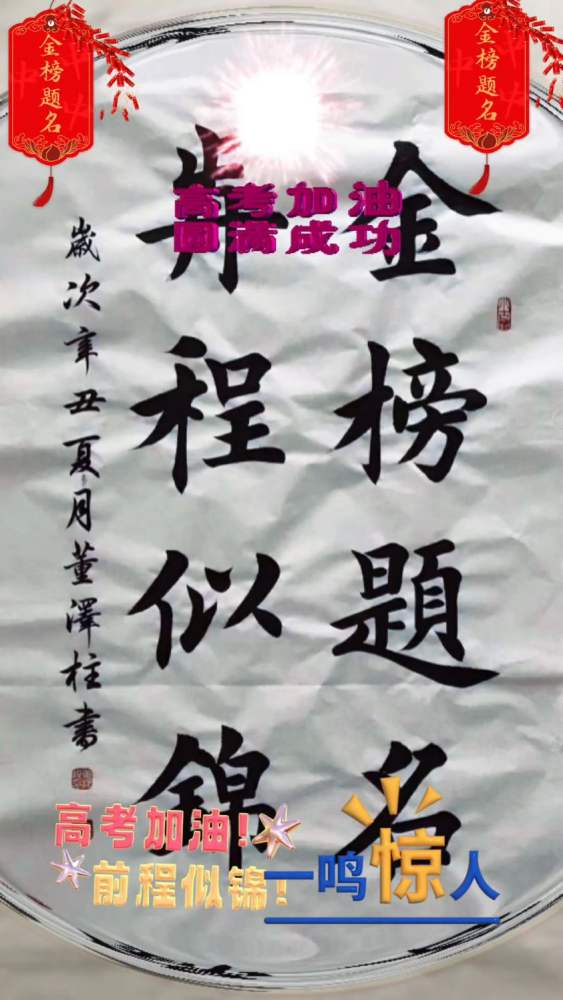 金榜题名
金榜题名
高考加油
圆满成功
金榜題名
前程似錦
歲次辛丑夏月董澤柱書
高考加油!
前程似锦!
一鸣惊人